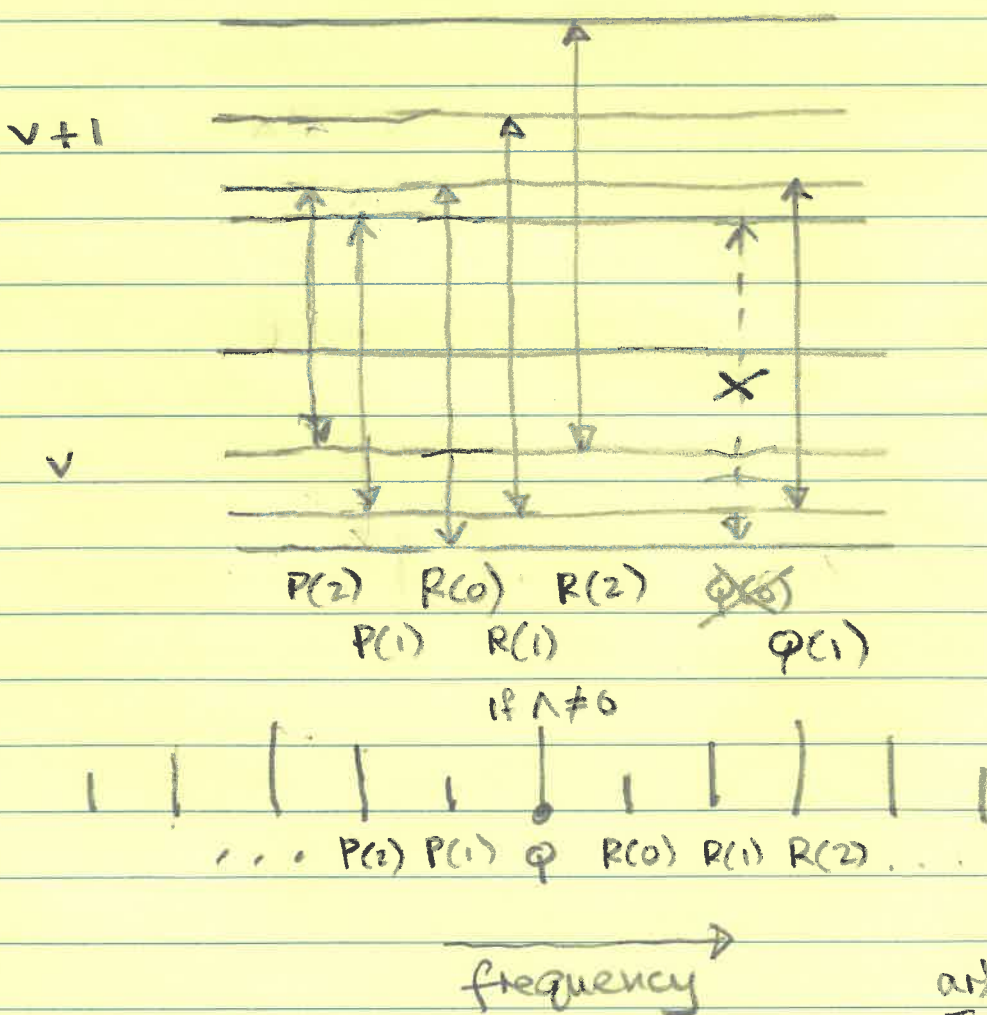 v+1
v
P(2) R(0) R(2) Q(0)
P(1) R(1) Q(1)
if Λ≠0
... P(2) P(1) Q R(0) R(1) R(2) ...
frequency